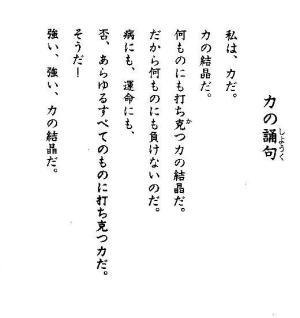 力の誦句
しょうく
私は、力だ。
力の結晶だ。
何ものにも打ち克つ力の結晶だ。
か
だから何ものにも負けないのだ。
病にも、運命にも、
否、あらゆるすべてのものに打ち克つ力だ。
そうだ！
強い、強い、力の結晶だ。